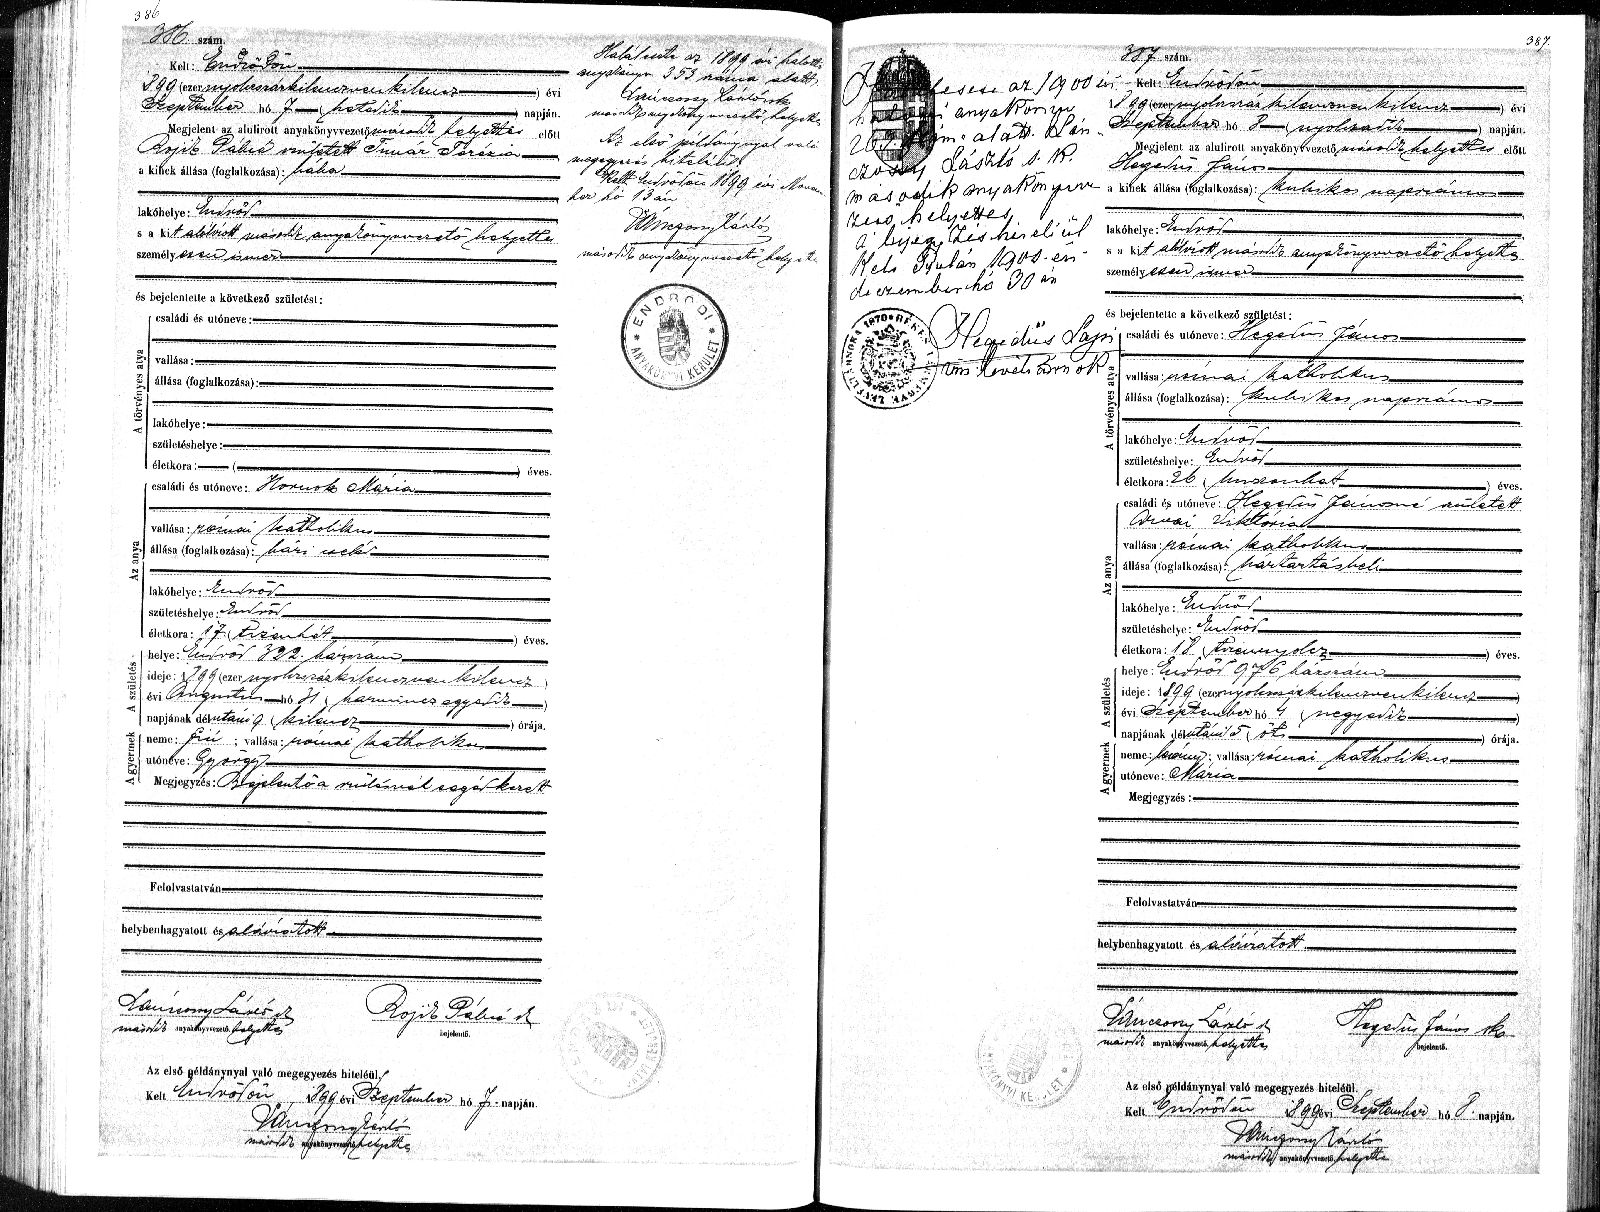 386
386. szám.
Kelt: Endrődön
899 (ezer nyolczszázkilenczvenkilencz) évi
Szeptember hó 7 (hetedik) napján.
Megjelent az alulirott anyakönyvvezető második helyettes előtt
Rojik Pálné született Timár Terézia
a kinek állása (foglalkozása): bába
lakóhelye: Endrőd
s a kit alulirott második anyakönyvvezető helyettes
személyesen ismer
és bejelentette a következő születést:
A törvényes atya
családi és utóneve:
vallása:
állása (foglalkozása):
lakóhelye:
születéshelye:
életkora: ( ) éves.
Az anya
családi és utóneve: Hornok Mária
vallása: római katholikus
állása (foglalkozása): házi cseléd
lakóhelye: Endrőd
születéshelye: Endrőd
életkora: 17 (tizenhét) éves.
A születés
helye: Endrőd 322. házszám
ideje: 1899 (ezer nyolczszázkilenczvenkilencz)
évi Augustus hó 31 (harminczegyedik)
napjának délutáni 9 (kilencz) órája.
A gyermek
neme: fiú; vallása: római katholikus
utóneve: György
Megjegyzés: Bejelentő a szülésnél segédkezett
Felolvastatván
helybenhagyatott és aláíratott
Lánczony László sk
Rojik Pálné sk
második anyakönyvvezető helyettes
bejelentő.
Az első példánynyal való megegyezés hiteléül.
Kelt Endrődön 1899 évi Szeptember hó 7. napján.
második anyakönyvvezető helyettes
Halálesete az 1899 évi halotti
anyakönyv 353 száma alatt,
második anyakönyvvezető helyettes
Az első példánynyal való
megegyezés hiteléül.
Kelt Endrődön 1899 évi Novem
ber hó 13 án
második anyakönyvvezető helyettes
ENDRŐDI
ANYAKÖNYVI KERÜLET
387
387 szám.
Kelt: Endrődön
899 (ezer nyolczszázkilenczvenkilencz) évi
Szeptember hó 8 (nyolczadik) napján.
Megjelent az alulirott anyakönyvvezető második helyettes előtt
Hegedüs János
a kinek állása (foglalkozása): kubikos napszámos
lakóhelye: Endrőd
s a kit alulirott második anyakönyvvezető helyettes
személyesen ismer
és bejelentette a következő születést:
A törvényes atya
családi és utóneve: Hegedüs János
vallása: római katholikus
állása (foglalkozása): kubikos napszámos
lakóhelye: Endrőd
születéshelye: Endrőd
életkora: 26 (huszonhat) éves.
Az anya
családi és utóneve: Hegedüs Jánosné született
Arvai Viktória
vallása: római katholikus
állása (foglalkozása): háztartásbeli
lakóhelye: Endrőd
születéshelye: Endrőd
életkora: 18 (tizennyolcz) éves.
A születés
helye: Endrőd 976 házszám
ideje: 1899 (ezer nyolczszázkilenczvenkilencz)
évi Szeptember hó 4 (negyedik)
napjának délutáni 5 (öt) órája.
A gyermek
neme: leány; vallása: római katholikus
utóneve: Mária
Megjegyzés:
Felolvastatván
helybenhagyatott és aláíratott
Lánczony László sk
Hegedüs János sk
második anyakönyvvezető helyettes
bejelentő.
Az első példánynyal való megegyezés hiteléül.
Kelt Endrődön 1899 évi Szeptember hó 8 napján.
második anyakönyvvezető helyettes
esese az 1900 évi
anyakönyv
szám alatt. Lán-
czony László s. k.
második anyakönyvve
zető helyettes
A bejegyzés hiteléül
Kelt Gyulán 1900. évi
deczember hó 30 án
Hegedüs Lajos
vm. levéltárnok